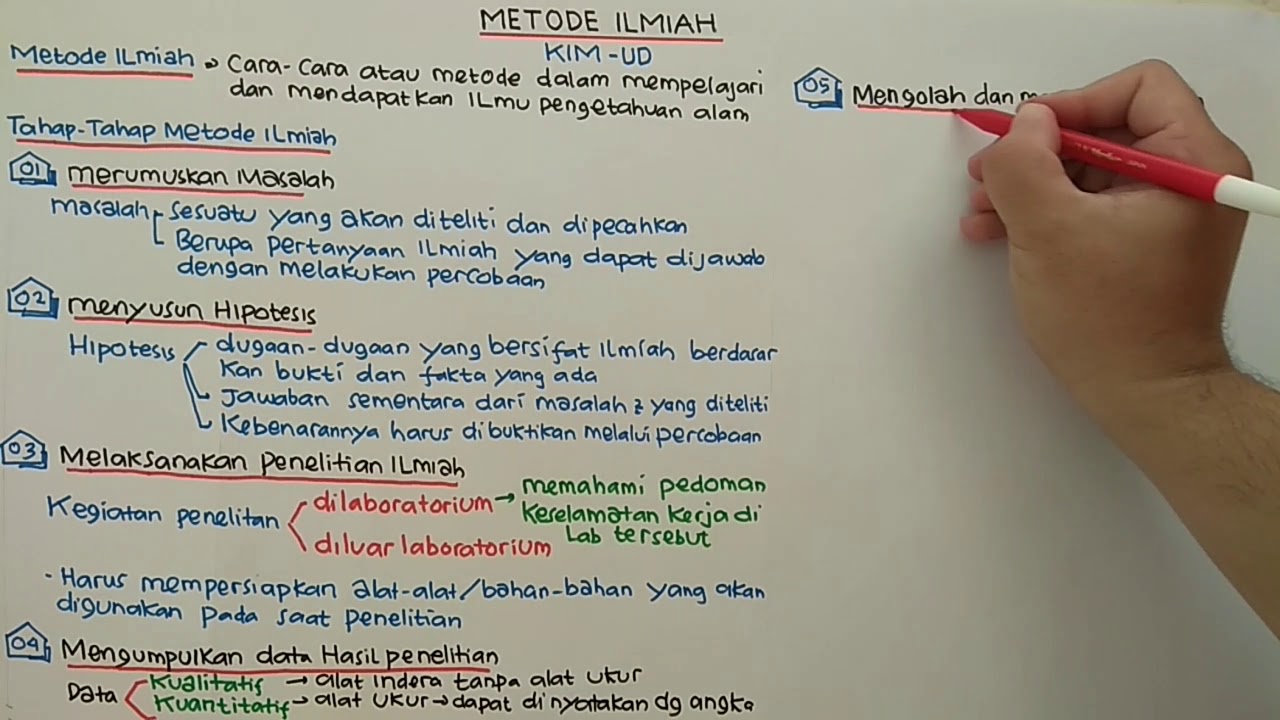 METODE ILMIAH
KIM-UD
Metode ILmiah → Cara-Cara atau metode dalam mempelajari
dan mendapatkan ILmu pengetahuan alam
Tahap-Tahap Metode ILmiah
01 merumuskan Masalah
masalah sesuatu yang akan diteliti dan dipecahkan
Berupa pertanyaan ILmiah yang dapat dijawab
dengan melakukan percobaan
02 menyusun Hipotesis
Hipotesis dugaan-dugaan yang bersifat ILmiah berdasar
Kan bukti dan fakta yang ada
Jawaban sementara dari masalah z yang diteliti
Kebenarannya harus dibuktikan melalui percobaan
03 Melaksanakan penelitian ILmiah
Kegiatan penelitan dilaboratorium → memahami pedoman
Keselamatan Kerja di
Lab tersebut
diluar laboratorium
- Harus mempersiapkan alat-alat/bahan-bahan yang akan
digunakan pada saat penelitian
04 Mengumpulkan data Hasil penelitian
Data Kualitatif → alat indera tanpa alat ukur
Kuantitatif → alat ukur → dapat dinyatakan dg angka
05 Mengolah dan